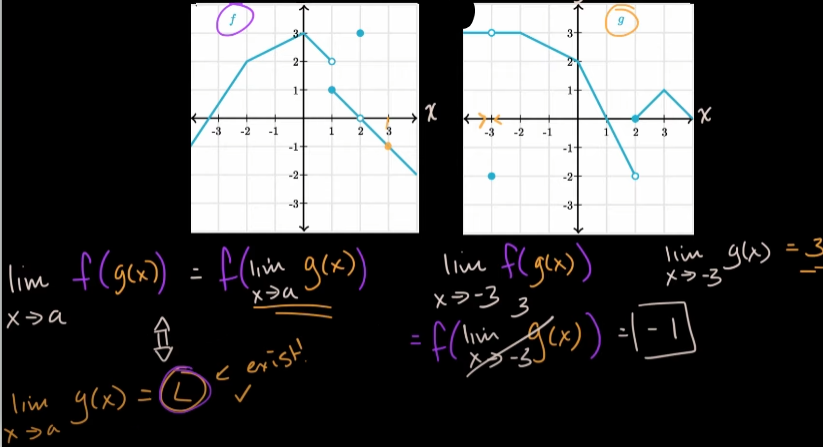 f
g
3
2
1
-3 -2 -1 1 2 3
-1
-2
-3
x
3
2
1
-3 -2 -1 1 2 3
-1
-2
-3
x
lim x→a f(g(x)) = f(lim x→a g(x))
lim x→a g(x) = L ← exist! ✓
lim x→-3 f(g(x))
= f(lim x→-3 g(x)) = -1
3
lim x→-3 g(x) = 3